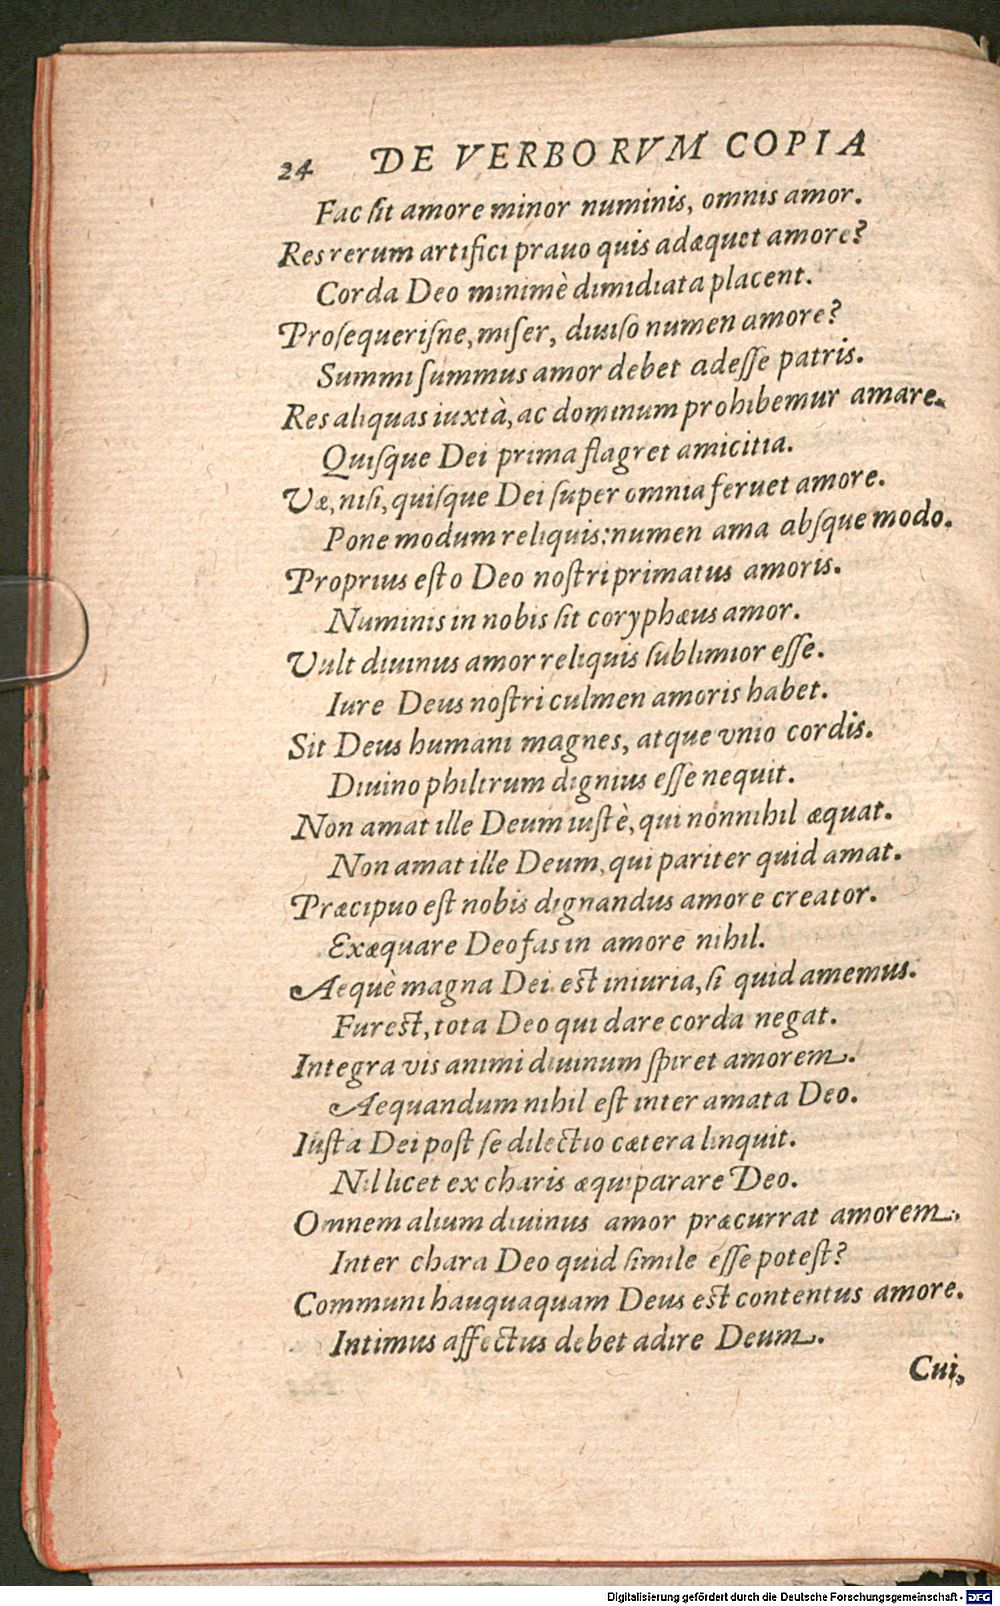 24 DE VERBORVM COPIA
Fac ſit amore minor numinis, omnis amor.
Res rerum artifici prauo quis adæquet amore?
Corda Deo minimè dimidiata placent.
Proſequeriſne, miſer, diuiſo numen amore?
Summi ſummus amor debet adeſſe patris.
Res aliquas iuxtà, ac dominum prohibemur amare.
Quiſque Dei prima flagret amicitia.
Væ, niſi, quiſque Dei ſuper omnia feruet amore.
Pone modum reliquis: numen ama abſque modo.
Proprius eſto Deo noſtri primatus amoris.
Numinis in nobis ſit coryphæus amor.
Vult diuinus amor reliquis ſublimior eſſe.
Iure Deus noſtri culmen amoris habet.
Sit Deus humani magnes, atque vnio cordis.
Diuino philtrum dignius eſſe nequit.
Non amat ille Deum iuſtè, qui nonnihil æquat.
Non amat ille Deum, qui pariter quid amat.
Præcipuo eſt nobis dignandus amore creator.
Exæquare Deo fas in amore nihil.
Aequè magna Dei eſt iniuria, ſi quid amemus.
Fur eſt, tota Deo qui dare corda negat.
Integra vis animi diuinum ſpiret amorem.
Aequandum nihil eſt inter amata Deo.
Iuſta Dei poſt ſe dilectio cætera linquit.
Nil licet ex charis æquiparare Deo.
Omnem alium diuinus amor præcurrat amorem.
Inter chara Deo quid ſimile eſſe poteſt?
Communi hauquaquam Deus eſt contentus amore.
Intimus affectus debet adire Deum.
Cui,
Digitalisierung gefördert durch die Deutsche Forschungsgemeinschaft - DFG